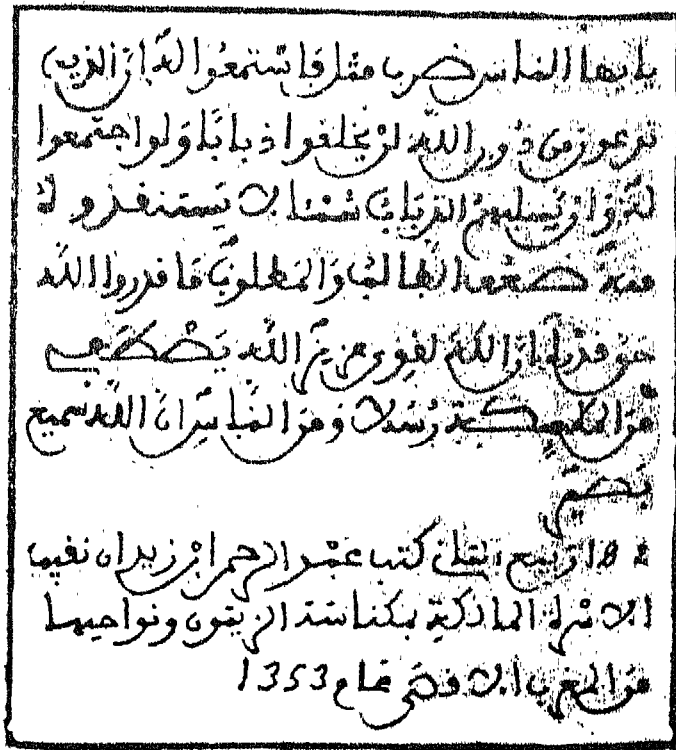 يايها الناس ضرب مثل فاستمعوا له إن الذين
تدعون من دون الله لن يخلقوا ذبابا ولو اجتمعوا
له وإن يسلبهم الذباب شيئا لا يستنقذوه
منه ضعف الطالب والمطلوب ما قدروا الله
حق قدره إن الله لقوي عزيز الله يصطفي
من الملئكة رسلا ومن الناس إن الله سميع
بصير
18 ربيع الثاني كتب عبد الرحمن ابن زيدان نقيب
الاسرة المالكة بمكناسة الزيتون ونواحيها
من المغرب الاقصى عام 1353